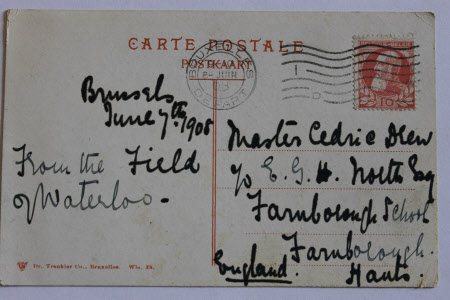 CARTE POSTALE
POSTKAART
BRUXELLES
JUIN
DEPART
10
Brussels
June 7th 1908
From the Field
of Waterloo.
Master Cedric Drew
c/o E. G. H. North Esq
Farnborough School
Farnborough.
Hants.
England.
Dr. Trenkler Co., Bruxelles.